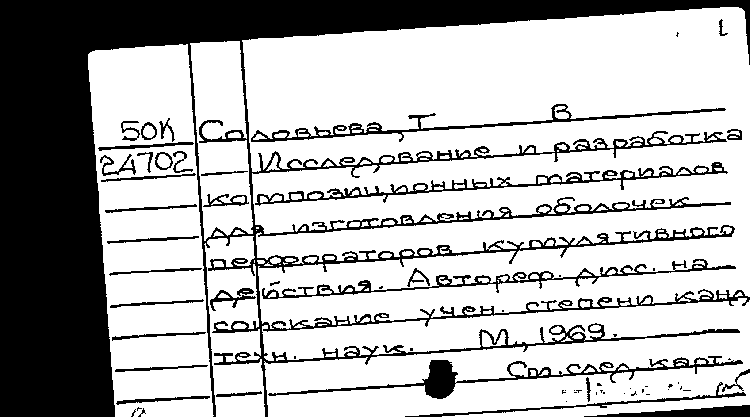 1
50К Соловьева, Т В
24702 Исследование и разработка
композиционных материалов
для изготовления оболочек
перфораторов кумулятивного
действия. Автореф. дисс. на
соискание учен. степени канд
техн. наук. М., 1969.
См. след. карт.